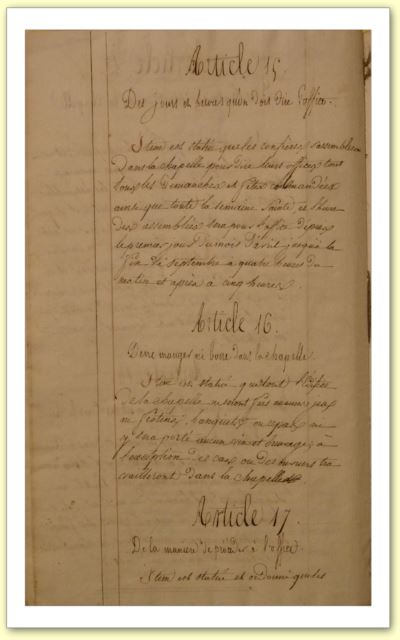 Article 15.
Des jours et heures qu'on doit dire l'office.
Item est statué que les confrères s'assembleron
Dans la chapelle pour dire leurs offices tout
tous les dimanches et fêtes commandées
ainsi que toute la semaine Sainte et l'heure
des assemblées sera pour l'office depuis
le premier jour du mois d'avril jusqu'à la
fin de septembre a quatre heures du
matin et après à cinq heures.
Article 16.
De ne manger ni boire dans la chapelle.
Item est statué que dans l'église
de la chapelle ne seront fais aucuns jeux
ni festins, banquets ou repas ni
y sera porté aucun vin et breuvage, à
l'exception des cas ou des ouvriers tra
vailleront dans la chapelle
Article 17.
De la maniere de procéder à l'office.
Item est statué et ordonné que les